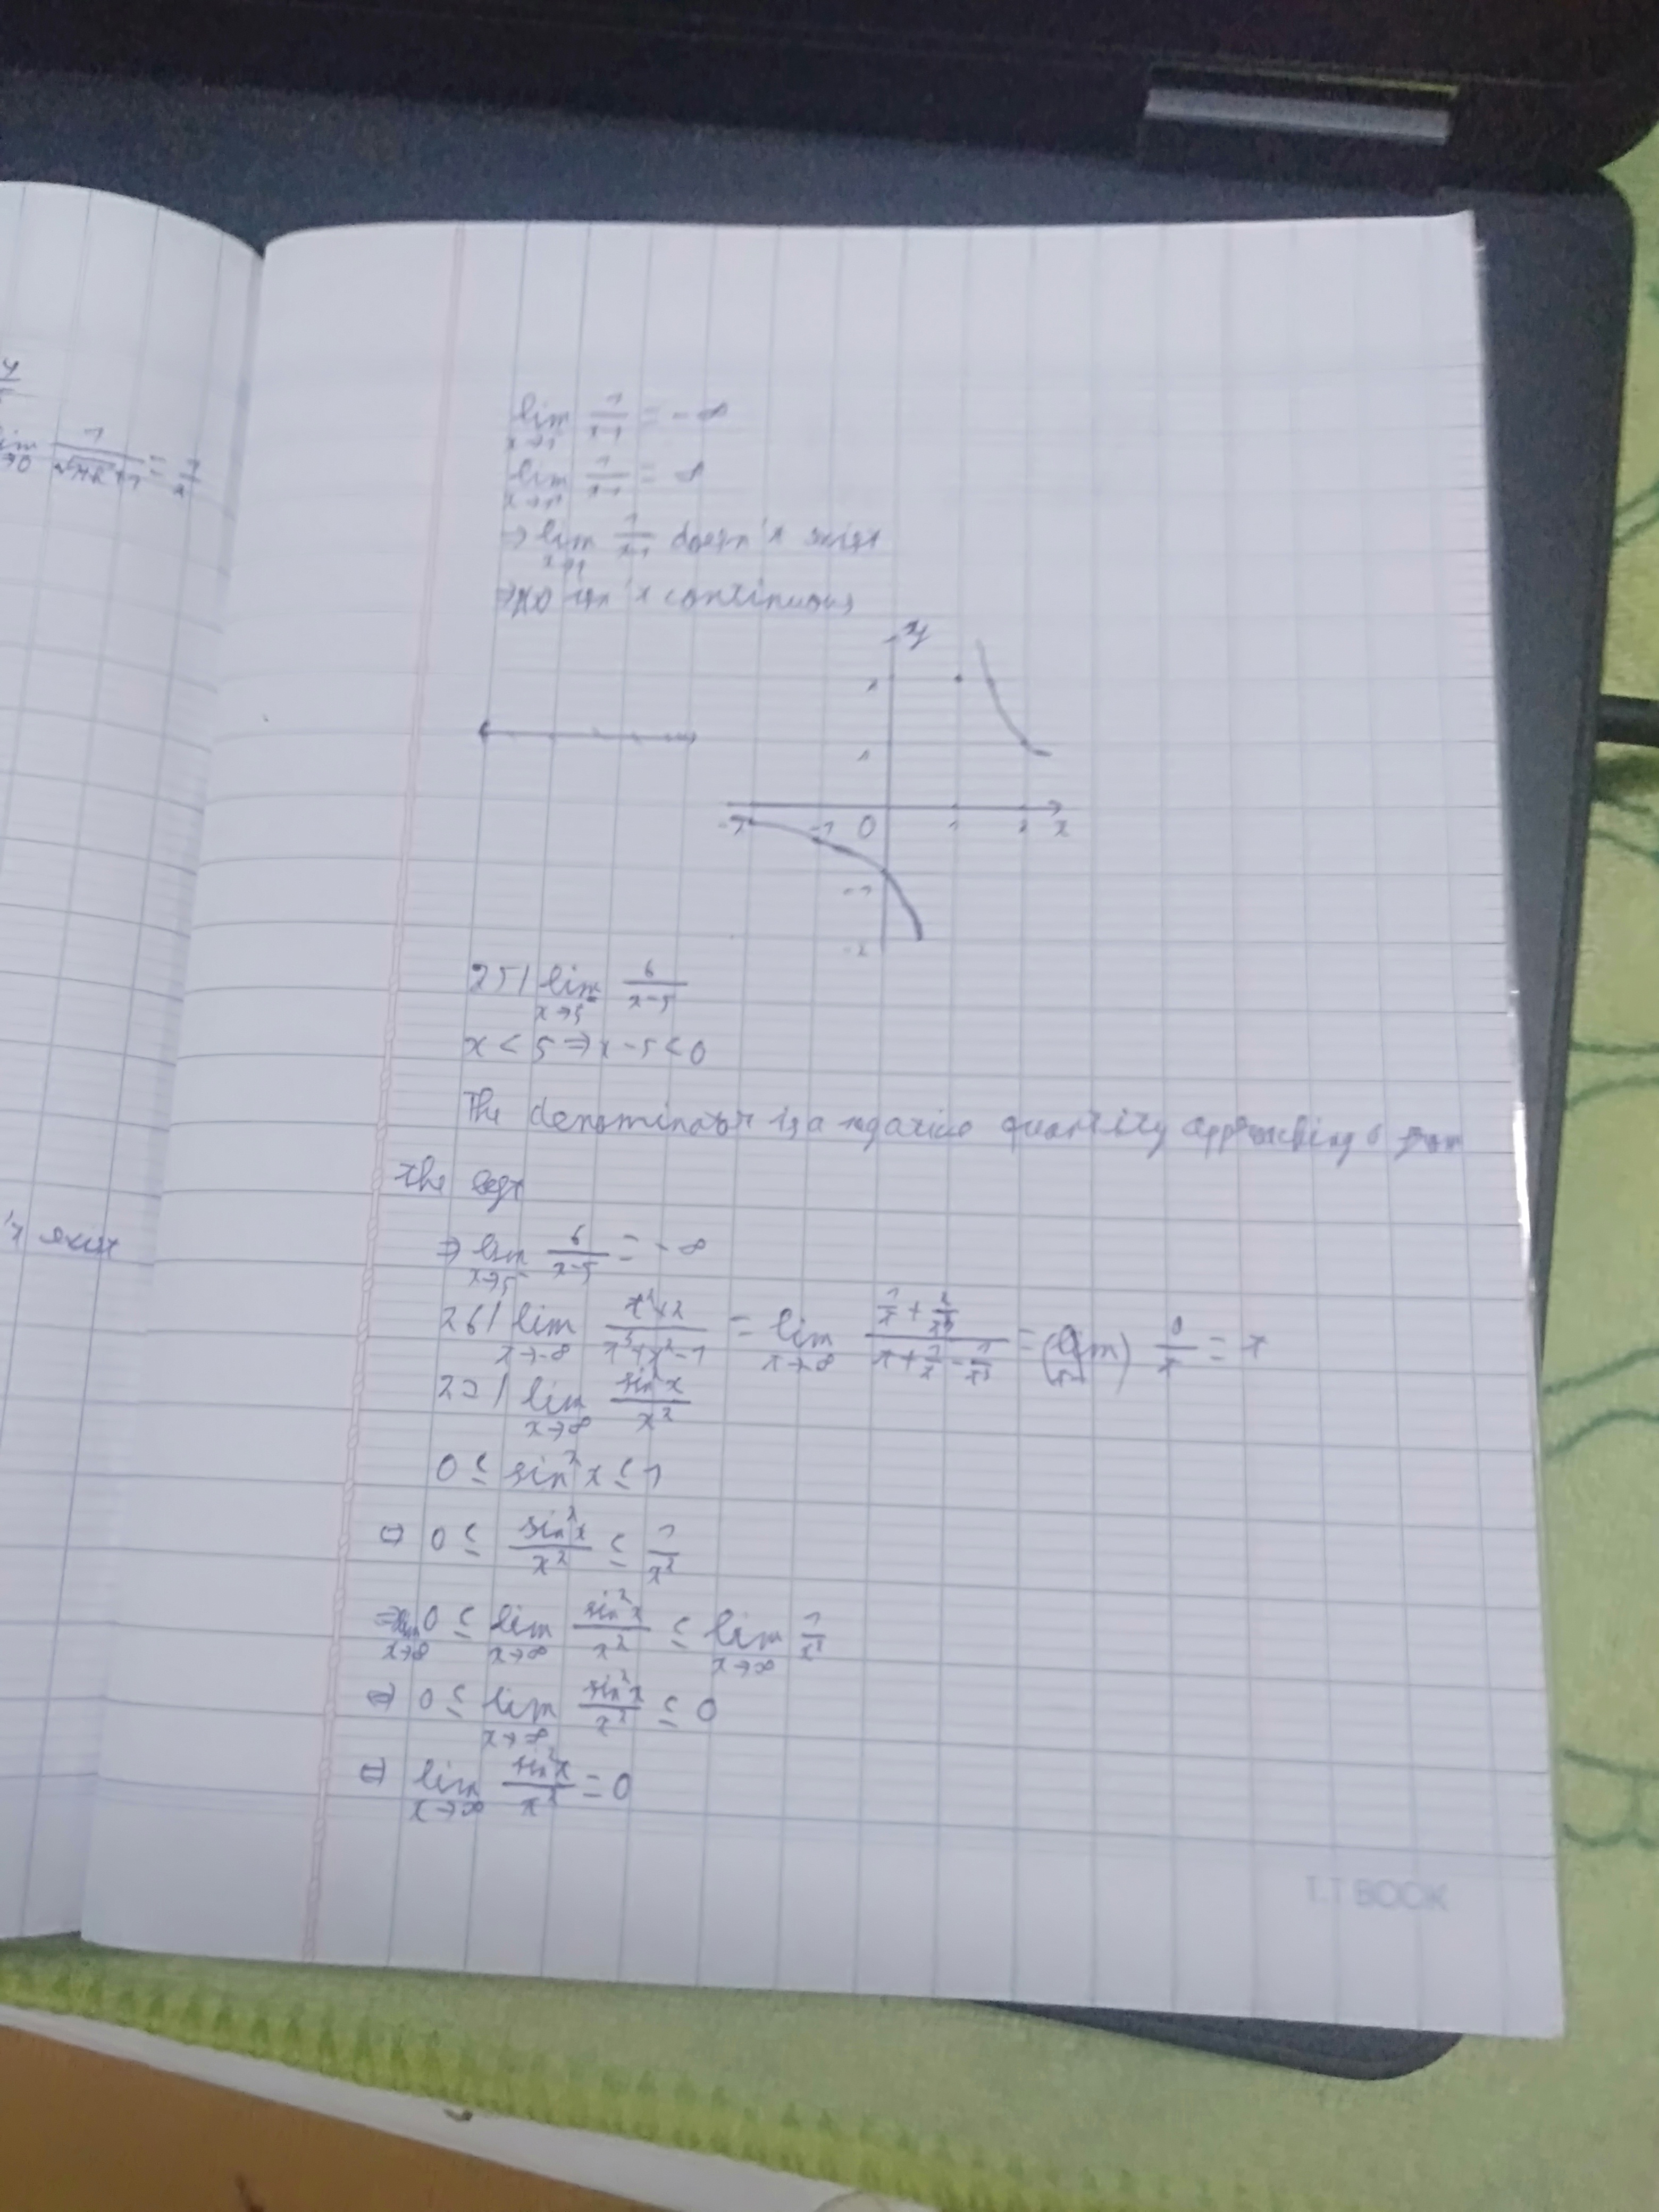 lim 1/√(1+h)+1 = 1/2
x→0
't exist
lim x→1⁻ 1/(x-1) = -∞
lim x→1⁺ 1/(x-1) = ∞
⇒ lim x→1 1/(x-1) doesn't exist
⇒ isn't continuous
y
2
1
-2 -1 0 1 2 x
-1
-2
25/ lim x→5⁻ 6/(x-5)
x < 5 ⇒ x-5 < 0
The denominator is a negative quantity approaching 0 from
the left
⇒ lim x→5⁻ 6/(x-5) = -∞
26/ lim x→-∞ = lim x→-∞
27/ lim x→∞ sin²x/x²
0 ≤ sin²x ≤ 1
⇔ 0 ≤ sin²x/x² ≤ 1/x²
⇒ lim x→∞ 0 ≤ lim x→∞ sin²x/x² ≤ lim x→∞ 1/x²
⇔ 0 ≤ lim x→∞ sin²x/x² ≤ 0
⇔ lim x→∞ sin²x/x² = 0
T.T BOOK